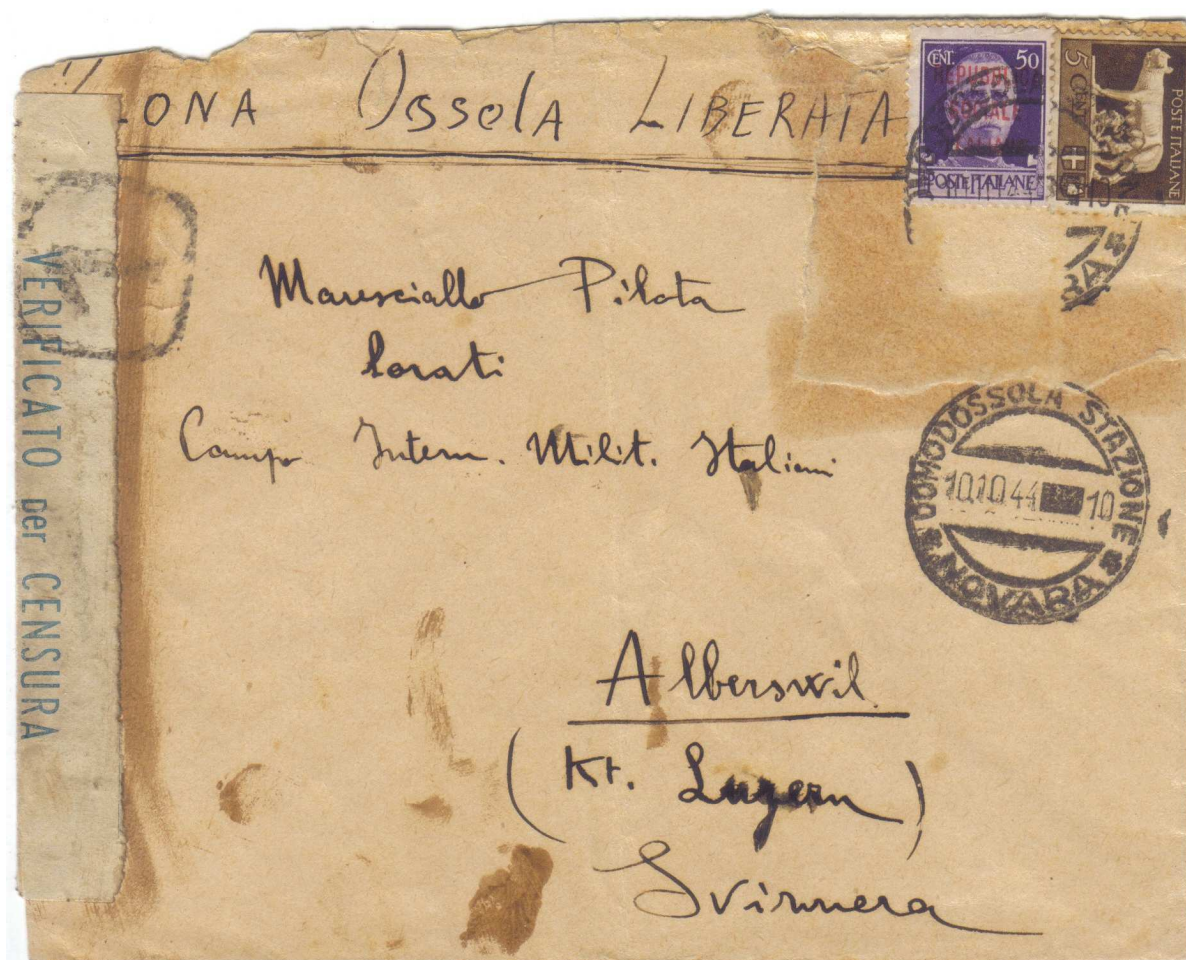 ZONA OSSOLA LIBERATA
CENT. 50
REPUBBLICA
SOCIALE
ITALIANA
POSTE ITALIANE
5 CENT
POSTE ITALIANE
VERIFICATO per CENSURA
Maresciallo Pilota
Lorati
Campo Intern. Milit. Italiani
DOMODOSSOLA STAZIONE
10.10.44 10
NOVARA
Alberswil
(Kt. Luzern)
Svizzera